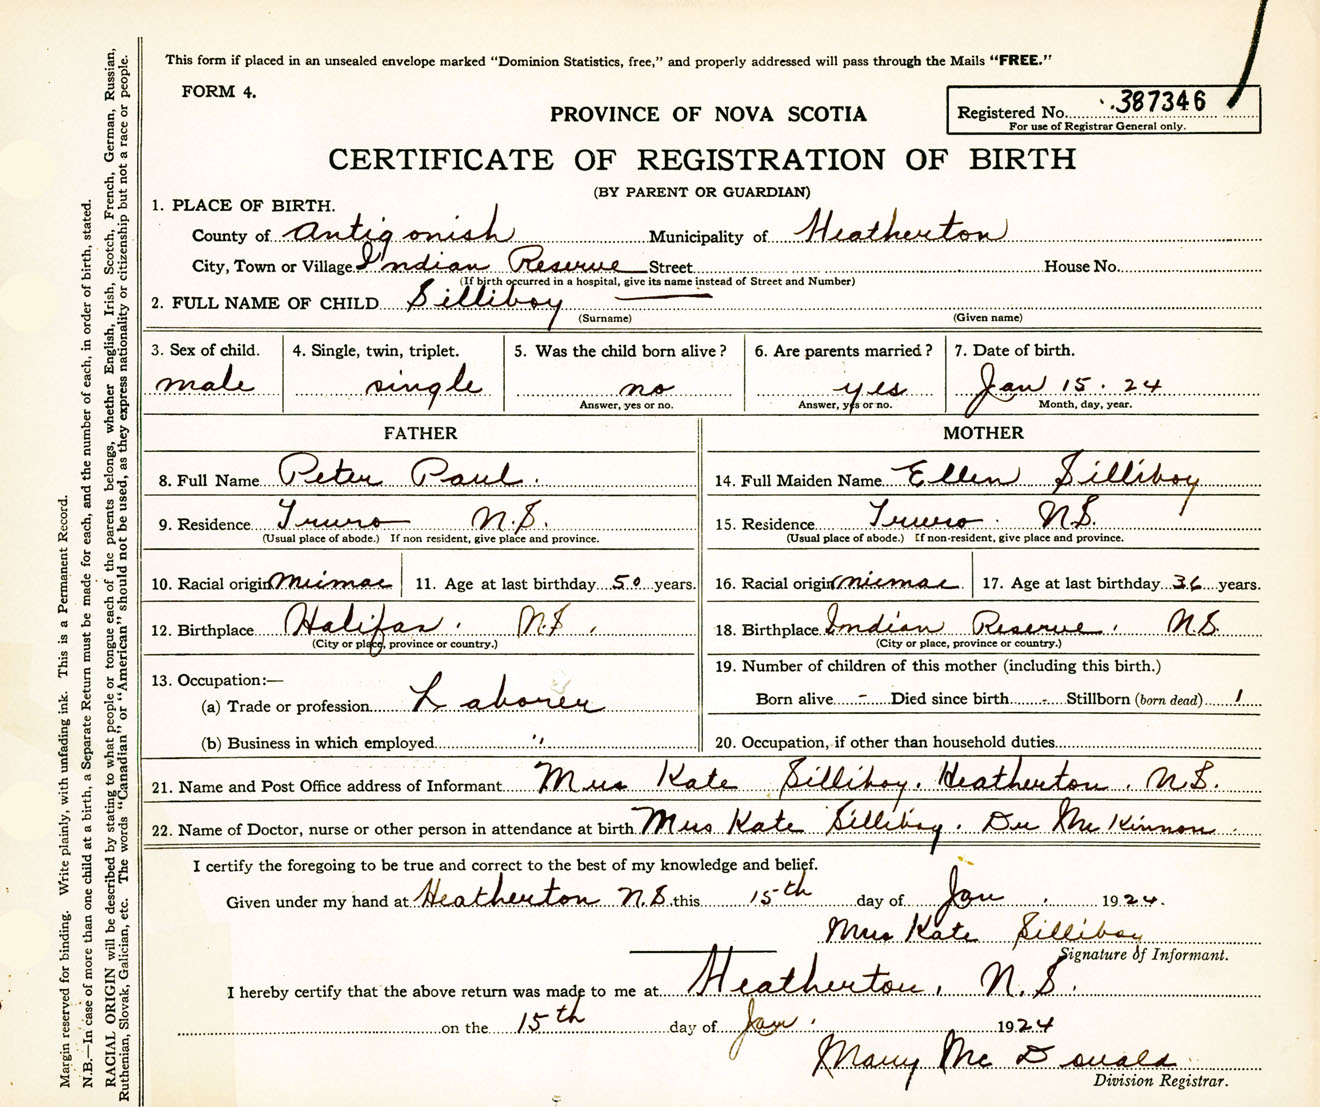 This form if placed in an unsealed envelope marked "Dominion Statistics, free," and properly addressed will pass through the Mails "FREE."
FORM 4.
Registered No. 387346
For use of Registrar General only.
PROVINCE OF NOVA SCOTIA
CERTIFICATE OF REGISTRATION OF BIRTH
(BY PARENT OR GUARDIAN)
1. PLACE OF BIRTH.
County of Antigonish Municipality of Heatherton
City, Town or Village Indian Reserve Street House No.
(If birth occurred in a hospital, give its name instead of Street and Number)
2. FULL NAME OF CHILD Silliboy
(Surname) (Given name)
3. Sex of child. 4. Single, twin, triplet. 5. Was the child born alive? 6. Are parents married? 7. Date of birth.
male single no yes Jan 15. 24
Answer, yes or no. Answer, yes or no. Month, day, year.
FATHER MOTHER
8. Full Name Peter Paul. 14. Full Maiden Name Ellen Silliboy
9. Residence Truro N.S. 15. Residence Truro. N.S.
(Usual place of abode.) If non resident, give place and province. (Usual place of abode.) If non-resident, give place and province.
10. Racial origin Micmac 11. Age at last birthday 50 years. 16. Racial origin Micmac 17. Age at last birthday 36 years.
12. Birthplace Halifax. N.S. 18. Birthplace Indian Reserve. N.S.
(City or place, province or country.) (City or place, province or country.)
13. Occupation:— 19. Number of children of this mother (including this birth.)
(a) Trade or profession Laborer Born alive - Died since birth - Stillborn (born dead) 1
(b) Business in which employed " 20. Occupation, if other than household duties
21. Name and Post Office address of Informant Mrs Kate Silliboy. Heatherton. N.S.
22. Name of Doctor, nurse or other person in attendance at birth Mrs Kate Silliboy. Dr McKinnon
I certify the foregoing to be true and correct to the best of my knowledge and belief.
Given under my hand at Heatherton N.S. this 15th day of Jan. 1924.
Mrs Kate Silliboy
Signature of Informant.
I hereby certify that the above return was made to me at Heatherton, N.S.
on the 15th day of Jan. 1924
Mary McDonald
Division Registrar.
Margin reserved for binding. Write plainly, with unfading ink. This is a Permanent Record.
N.B.—In case of more than one child at a birth, a Separate Return must be made for each, and the number of each, in order of birth, stated.
RACIAL ORIGIN will be described by stating to what people or tongue each of the parents belongs, whether English, Irish, Scotch, French, German, Russian,
Ruthenian, Slovak, Galician, etc. The words "Canadian" or "American" should not be used, as they express nationality or citizenship but not a race or people.